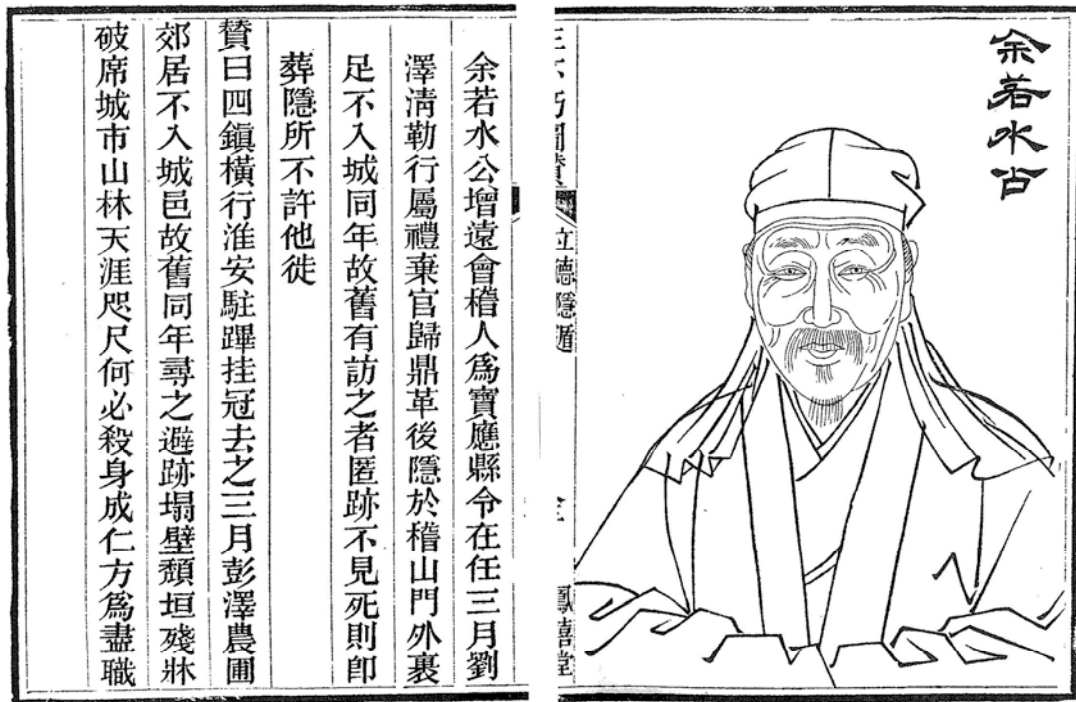 余若水公
立德隱遯
鳳嬉堂
余若水公增遠會稽人爲寶應縣令在任三月劉
澤清勒行屬禮棄官歸鼎革後隱於稽山門外裹
足不入城同年故舊有訪之者匿跡不見死則卽
葬隱所不許他徙
贊曰四鎮橫行淮安駐蹕挂冠去之三月彭澤農圃
郊居不入城邑故舊同年尋之避跡塌壁頹垣殘牀
破席城市山林天涯咫尺何必殺身成仁方爲盡職